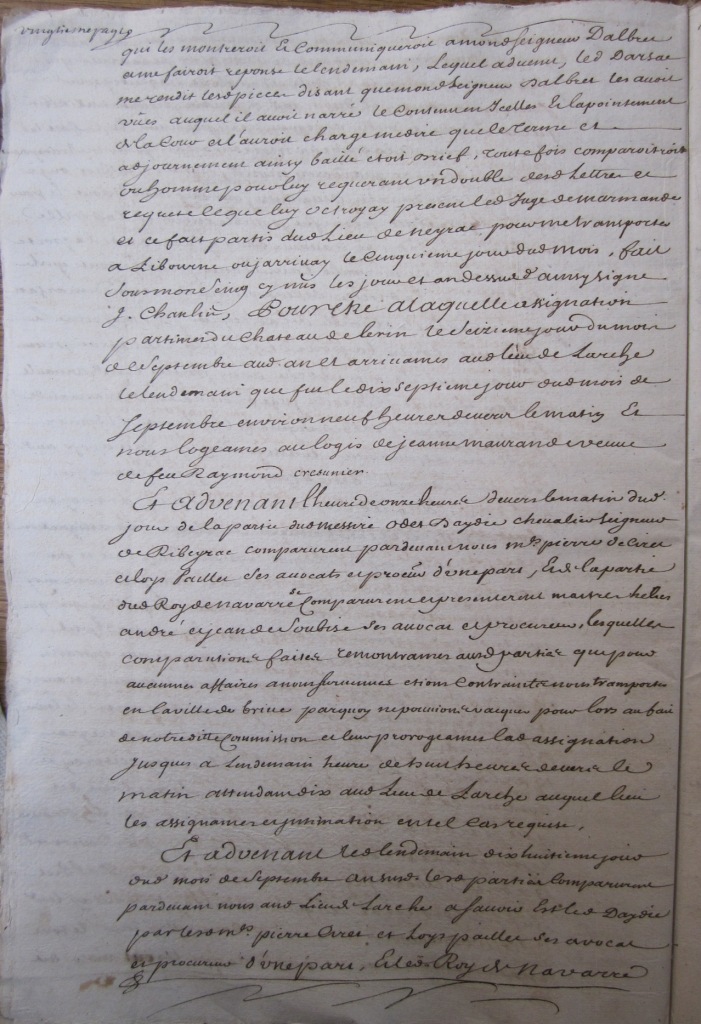 vingtiesme page
qui les monstreroit et communiqueroit a mond seigneur Dalbret
et me fairoit reponse le lendemain, Lequel advenu, led Darsac
me rendit lesd pieces disant que mond seigneur Dalbret les avoit
vües auquel il avoit narré le contenu en Icelles et lapointement
de la Cour et l'auroit chargé me dire que le terme et
adjournement ainsy baillé etoit brief, toutefois comparoitroit
ou homme pour luy requerant un double desd Lettres et
requete ce que luy octroyay present led Juge de marmande
et ce fait partis dud Lieu de neyrac pour me transporter
a Libourne ou jarrivay le cinquieme jour dud mois, fait
sous mon seing cy mis les jour et an dessusd ainsy signé
J. Charlin, Pour etre a laquelle assignation
partimes du Chateau de le seizieme jour du mois
de septembre aud an et arrivames aud lieu de Larche
le lendemain que fut le dix septieme jour dud mois de
septembre environ neuf heures devers le matin Et
nous logeames au logis de jeanne maurand veuve
de feu Raymond
Et advenant l'heure de onze heures devers le matin dud
jour de la partie dud messire odet Daydie chevalier seigneur
de Ribeyrac comparurent pardevant nous md pierre de Ciret
et loys Pailler ses avocats et procur d'une part, Et de la partie
dud Roy de navarre se comparurent et presenterent maitres helies
andré et jean de Soubise ses avocat et procureur, lesquelles
comparutions faites remontrames ausd parties que pour
aucunes affaires a nous survenues etions contraints nous transporter
en la ville de brive parquoy ne pouvions vacquer pour lors au fait
de notreditte commission et leur prorogeames lad assignation
jusques a Lendemain heure de huit heures devers le
matin attendant dix aud Lieu de Larche auquel lieu
les assignames et jntimation en tel cas requise,
Et advenant led lendemain dix huitieme jour
dud mois de septembre an susd lesd parties comparurent
pardevant nous aud Lieu de Larche a sçavoir Est led Daydie
par lesd mds pierre Ciret et Loys pailler ses avocat
et procureur d'une part, Et led Roy de navarre